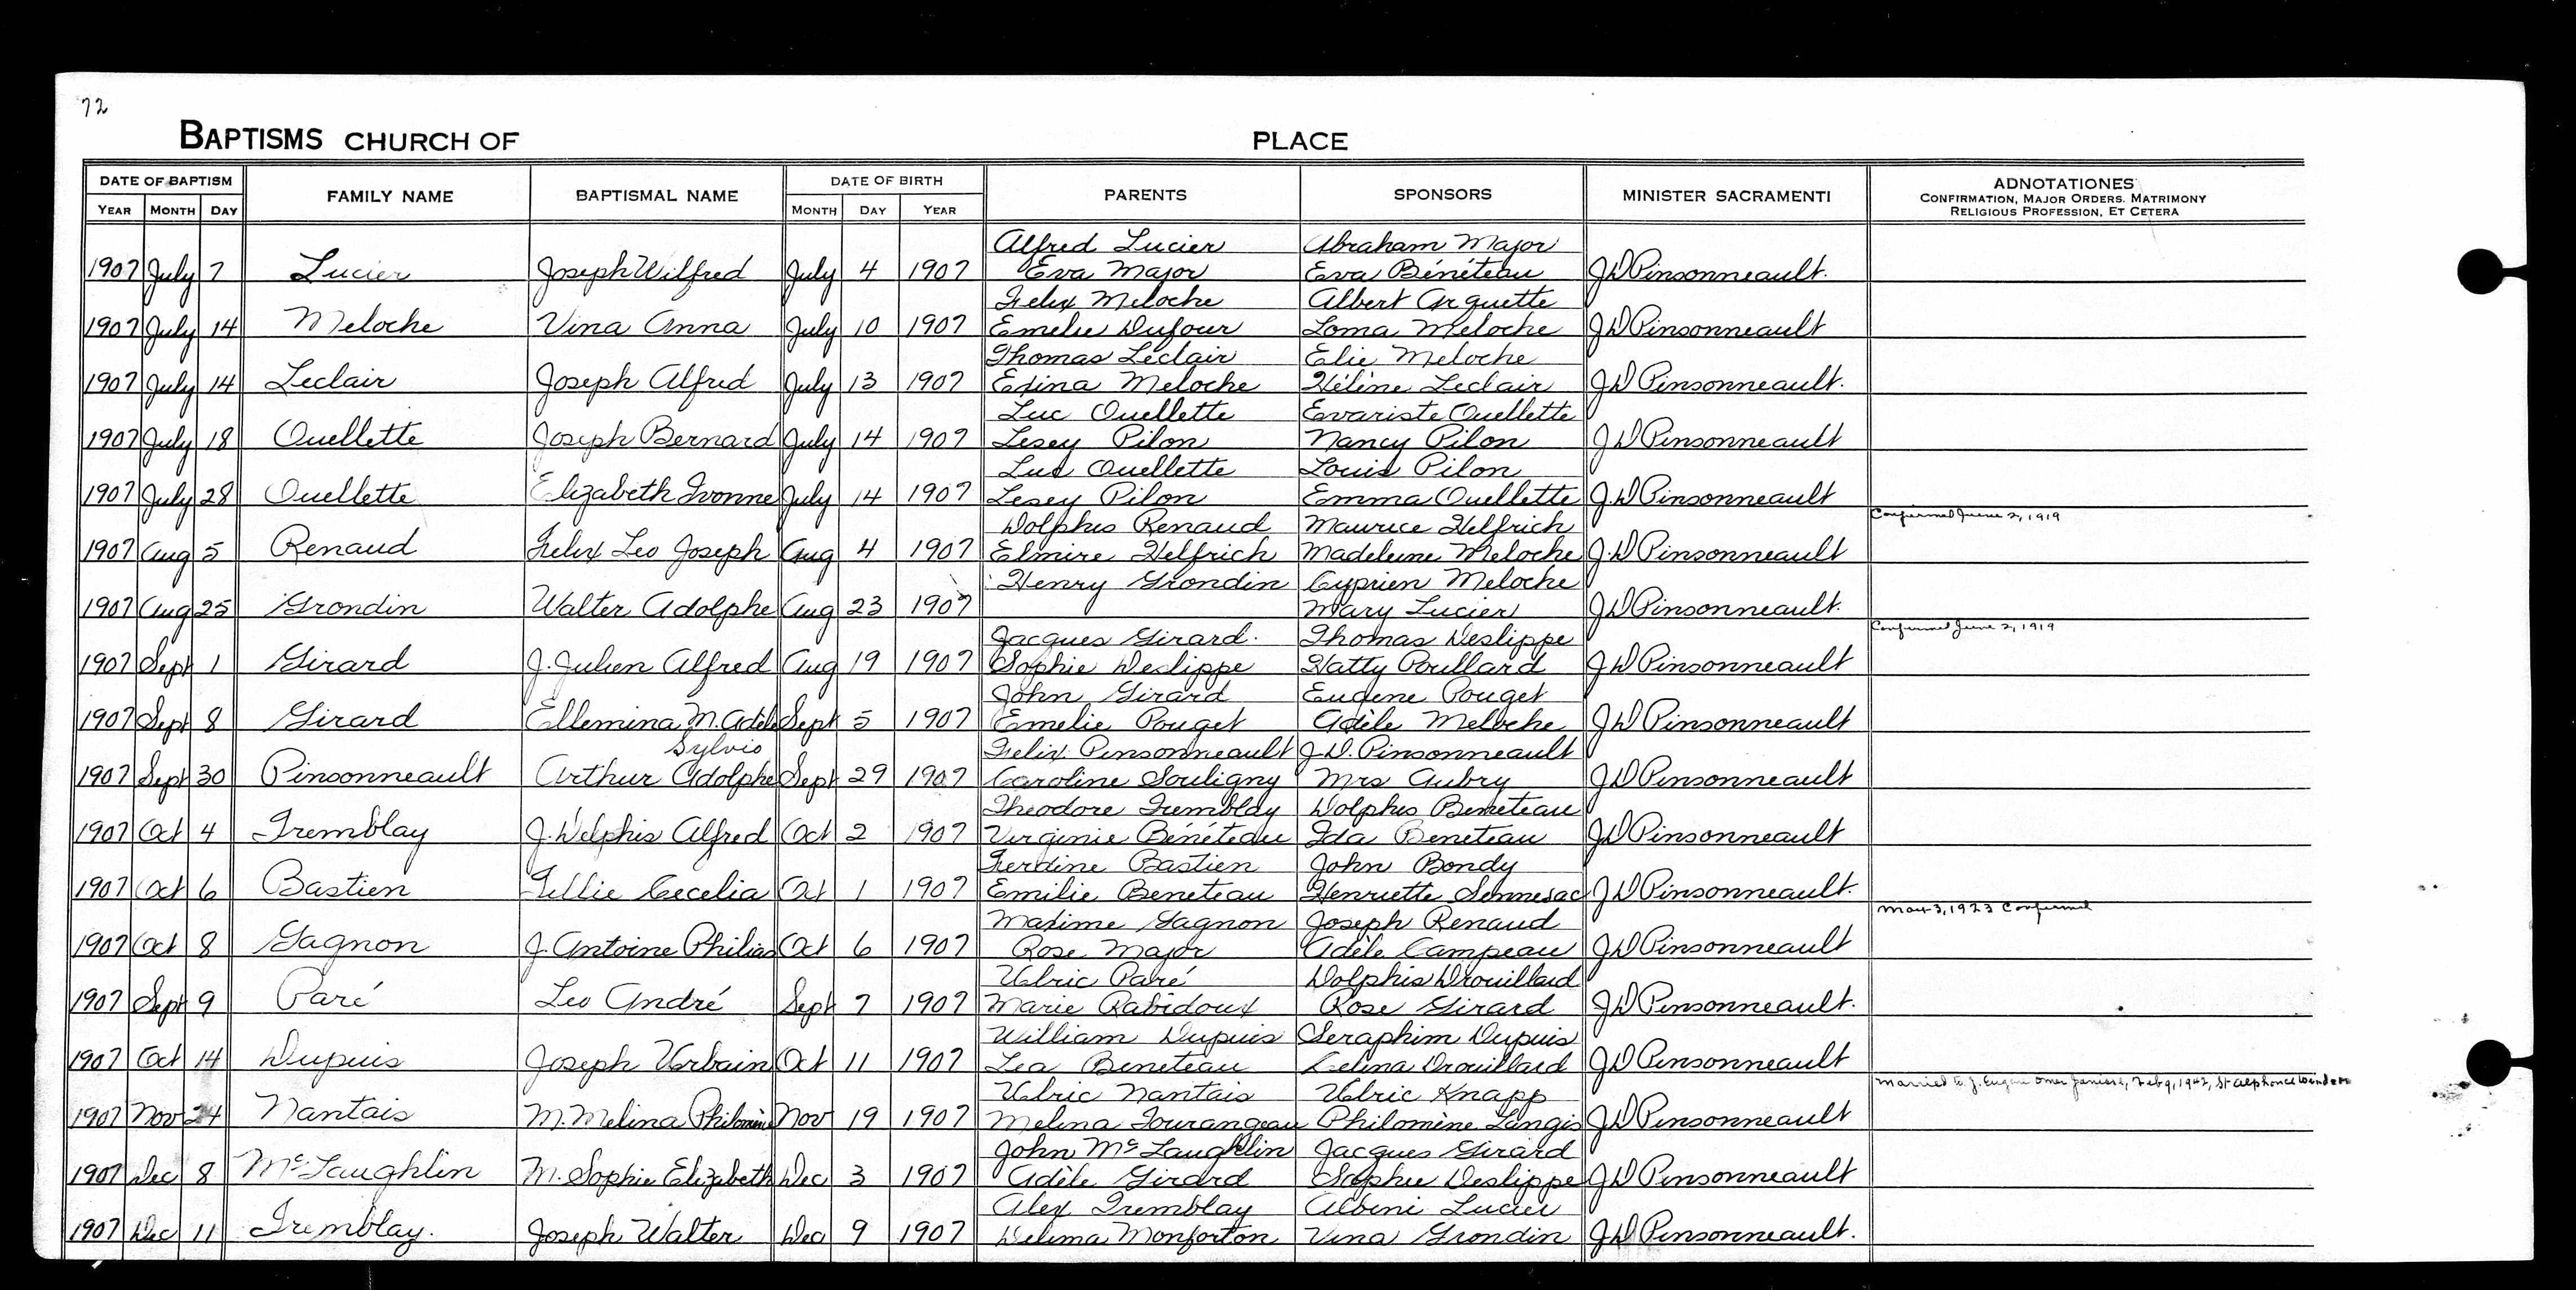 72
BAPTISMS CHURCH OF PLACE
DATE OF BAPTISM FAMILY NAME BAPTISMAL NAME DATE OF BIRTH PARENTS SPONSORS MINISTER SACRAMENTI ADNOTATIONES
CONFIRMATION, MAJOR ORDERS. MATRIMONY
YEAR MONTH DAY MONTH DAY YEAR RELIGIOUS PROFESSION, ET CETERA
Alfred Lucier Abraham Major
1907 July 7 Lucier Joseph Wilfred July 4 1907 Eva Major Eva Bénéteau J D Pinsonneault.
Felix Meloche Albert Arquette
1907 July 14 Meloche Vina Anna July 10 1907 Emelie Dufour Loma Meloche J D Pinsonneault
Thomas Leclair Elie Meloche
1907 July 14 Leclair Joseph Alfred July 13 1907 Exina Meloche Hélène Leclair J D Pinsonneault.
Luc Ouellette Evariste Ouellette
1907 July 18 Ouellette Joseph Bernard July 14 1907 Lesey Pilon Nancy Pilon J D Pinsonneault
Luc Ouellette Louis Pilon
1907 July 28 Ouellette Elizabeth Ivonne July 14 1907 Lesey Pilon Emma Ouellette J. D Pinsonneault
Dolphis Renaud Maurice Helfrich Confirmed June 2, 1919
1907 Aug 5 Renaud Felix Leo Joseph Aug 4 1907 Elmire Helfrich Madeleine Meloche J. D Pinsonneault
Henry Grondin Cyprien Meloche
1907 Aug 25 Grondin Walter Adolphe Aug 23 1907 Mary Lucier J D Pinsonneault.
Jacques Girard. Thomas Deslippe Confirmed June 2, 1919
1907 Sept 1 Girard J. Julien Alfred Aug 19 1907 Sophie Deslippe Hatty Poullard J D Pinsonneault
John Girard Eugene Pouget
1907 Sept 8 Girard Ellemina M. Adèle Sept 5 1907 Emelie Pouget Adèle Meloche J D Pinsonneault
Sylvio Felix Pinsonneault J. D. Pinsonneault
1907 Sept 30 Pinsonneault Arthur Adolphe Sept 29 1907 Caroline Souligny Mrs Aubry J D Pinsonneault
Theodore Tremblay Dolphis Beneteau
1907 Oct 4 Tremblay J. Delphis Alfred Oct 2 1907 Virginie Bénéteau Ida Beneteau J D Pinsonneault
Ferdine Bastien John Bondy
1907 Oct 6 Bastien Tillie Cecelia Oct 1 1907 Emilie Beneteau Henriette Sennesac J D Pinsonneault.
Maxime Gagnon Joseph Renaud May 3, 1923 Confirmed
1907 Oct 8 Gagnon J. Antoine Philias Oct 6 1907 Rose Major Adèle Campeau J D Pinsonneault
Ulric Paré Dolphis Drouillard
1907 Sept 9 Paré Leo André Sept 7 1907 Marie Rabidoux Rose Girard J D Pinsonneault.
William Dupuis Seraphim Dupuis
1907 Oct 14 Dupuis Joseph Urbain Oct 11 1907 Lea Beneteau Celina Drouillard J D Pinsonneault
Ulric Nantais Ulric Knapp Married to J. Eugene Omer Janisse, Feb 9, 1942, St Alphonse Windsor
1907 Nov 24 Nantais M. Melina Philomène Nov 19 1907 Melina Tourangeau Philomène Langis J D Pinsonneault
John McLaughlin Jacques Girard
1907 Dec 8 McLaughlin M. Sophie Elizabeth Dec 3 1907 Adèle Girard Sophie Deslippe J D Pinsonneault
Alex Tremblay Albini Lucier
1907 Dec 11 Tremblay. Joseph Walter Dec 9 1907 Delima Monforton Vina Grondin J D Pinsonneault.